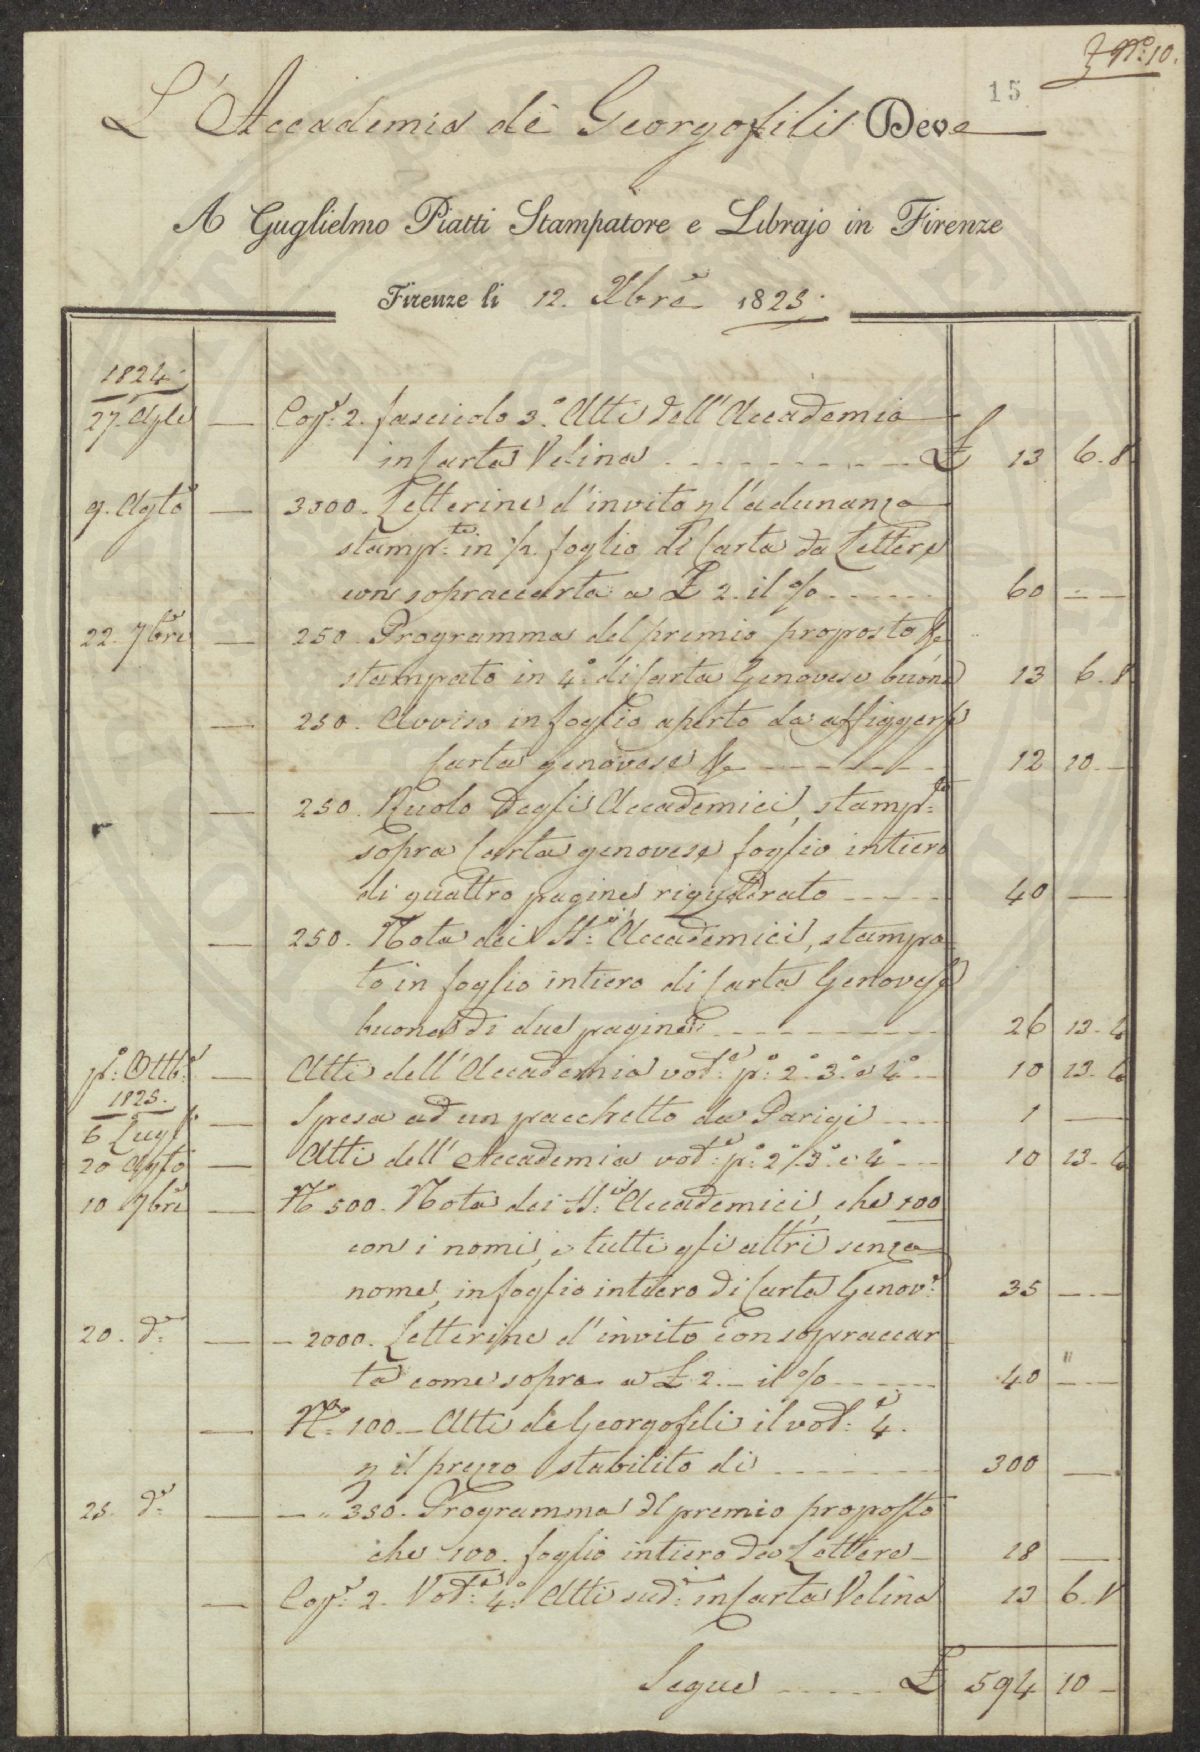 N.° 10.
15
L'Accademia de' Georgofili Deve
A Guglielmo Piatti Stampatore e Librajo in Firenze
Firenze li 12. Xbrē 1825.
1824.
27. Aple — Cop.e 2. fascicolo 3.° Atti dell'Accademia
in Carta Velina £ 13 6. 8
9. Agto — 3000. Letterine d'invito p l'adunanza
stamp.te in 1/2 foglio di Carta da Lettere
con sopraccarta a £ 2. il % 60 — —
22. 7bre — 250. Programma del premio proposto
stampato in 4.° di Carta Genovese buona 13 6. 8
— 250. Avviso in foglio aperto da affiggersi
Carta genovese 12 10 —
— 250. Ruolo degli Accademici, stamp.to
sopra Carta genovese foglio intiero
di quattro pagine riquadrato 40 —
— 250. Nota dei SS.ri Accademici, stampa-
to in foglio intiero di Carta Genovese
buona di due pagine 26 13. 4
p.° Ottb.e — Atti dell'Accademia vol.e p.° 2.° 3.° e 4.° 10 13. 4
1825.
6 Lug.° — Spesa ad un pacchetto da Parigi 1 —
20 Agto — Atti dell'Accademia vol.e p.° 2.° 3.° e 4.° 10 13. 4
10 7bre — N.° 500. Nota dei SS.ri Accademici, che 100
con i nomi, e tutti gli altri senza
nome, in foglio intiero di Carta Genov.e 35 — —
20. d.° — — 2000. Letterine d'invito con sopraccar
ta come sopra a £ 2 — il % 40 " —
— N.° 100 — Atti de Georgofili il vol.e 4.
p il prezzo stabilito di 300 —
25. d.° — — " 350. Programma del premio proposto
che 100. foglio intiero da Lettere 18 —
— Cop.e 2. Vol.e 4.° Atti sud.i in Carta Velina 13 6. 8
Segue £ 594 10 —